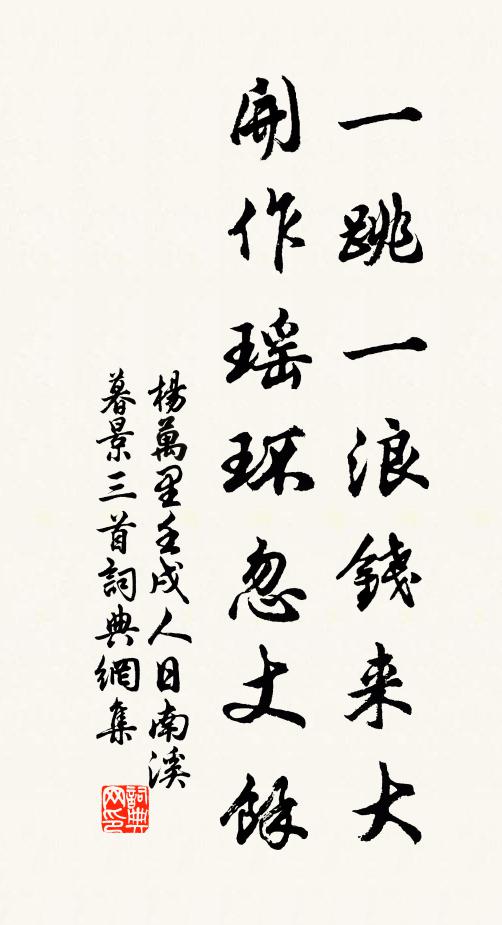 一跳一浪錢来大
開作瑶环忽丈餘
楊萬里壬戌人日南溪
暮景三首詞典網集
詞典网印